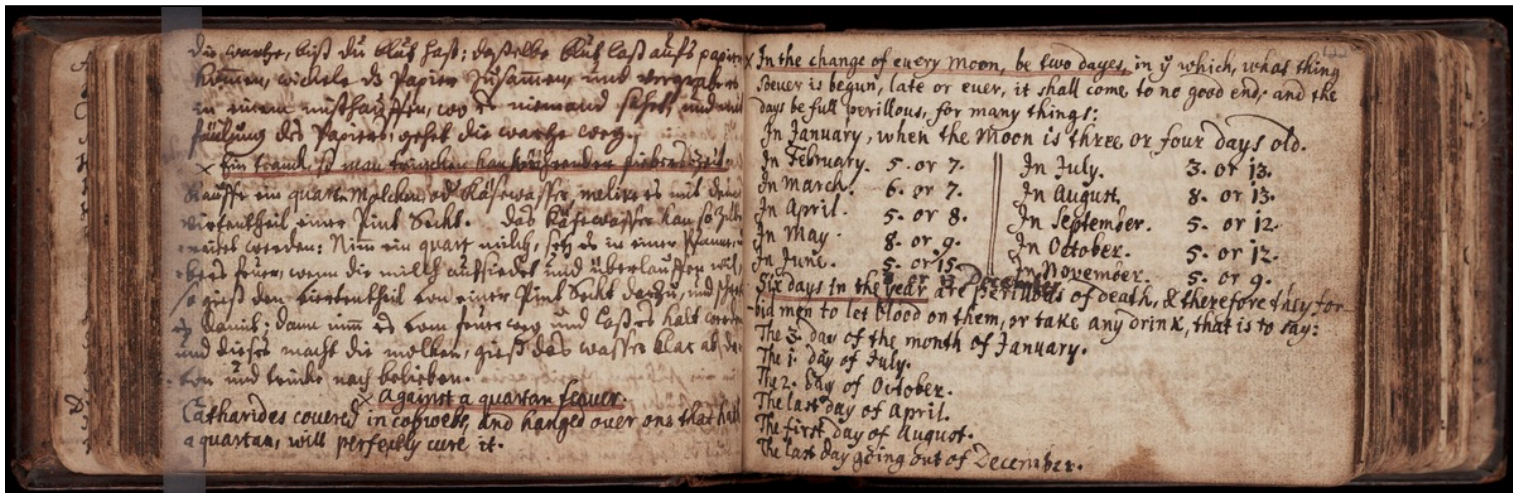 die wartze, bist du blut hast; dasselbe blut laß aufs papier
kom̄en, wickele ds Papier zusam̄en, und vergrabe es
in einem misthauffen, wo es niemand sehet, und mit
fäulung des Papiers, gehet die wartze weg.
× Ein tranck, so man trincken kan währender fiebers zeit.
Kauffe ein quart Molcken od Käsewasser, melire es mit dem
viertentheil einer Pint Seckt. das Käsewasser kan so
werden: Nim̄ ein quart milch, setz es in einer Pfanne
feuer, wenn die milch aufsiedet und überlauffen wil,
so gieß den viertentheil von einer Pint Seckt darzu, und
es damit; dann nim̄ es vom feuer weg und laß es kalt werden
und dieses macht die molken, gieß das wasser klar ab,
von und trincke nach belieben.
× Against a quartan feauer.
Catharides couered in cobweb, and hanged over one that hath
a quartan, will perfectly cure it.
× In the change of euery moon, be two dayes, in ÿ which, what thing
soeuer is begun, late or euer, it shall come to no good end; and the
days be full perillous, for many things:
In January, when the Moon is three or four days old.
In February. 5. or 7. In July. 3. or 13.
In March. 6. or 7. In August. 8. or 13.
In April. 5. or 8. In September. 5. or 12.
In May. 8. or 9. In October. 5. or 12.
In June. 5. or 15. In November. 5. or 9.
December
Six days in the year are perillous of death, & therefore they for-
-bid men to let blood on them, or take any drink, that is to say:
The 3. day of the month of January.
The 1. day of July.
The 2. day of October.
The last day of April.
The first day of August.
The last day going out of December.